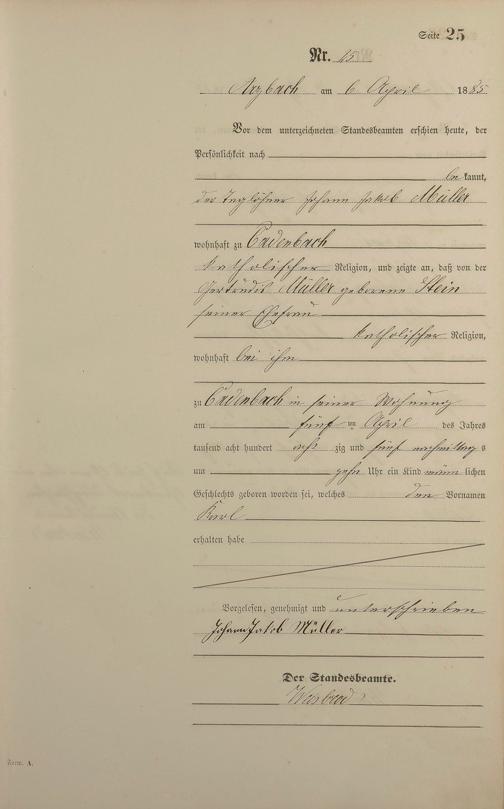 Seite 25
Nr. 15
Arzbach am 6 April 1885
Vor dem unterzeichneten Standesbeamten erschien heute, der
Persönlichkeit nach
be kannt,
der Taglöhner Johann Jakob Müller
wohnhaft zu Cadenbach
katholischer Religion, und zeigte an, daß von der
Gertrudis Müller geborene Stein
seiner Ehefrau
katholischer Religion,
wohnhaft bei ihm
zu Cadenbach in seiner Wohnung
am fünf ten April des Jahres
tausend acht hundert acht zig und fünf nachmittag s
um zehn Uhr ein Kind männ lichen
Geschlechts geboren worden sei, welches den Vornamen
Karl
erhalten habe
Vorgelesen, genehmigt und unterschrieben
Johann Jakob Müller
Der Standesbeamte.
Form. A.